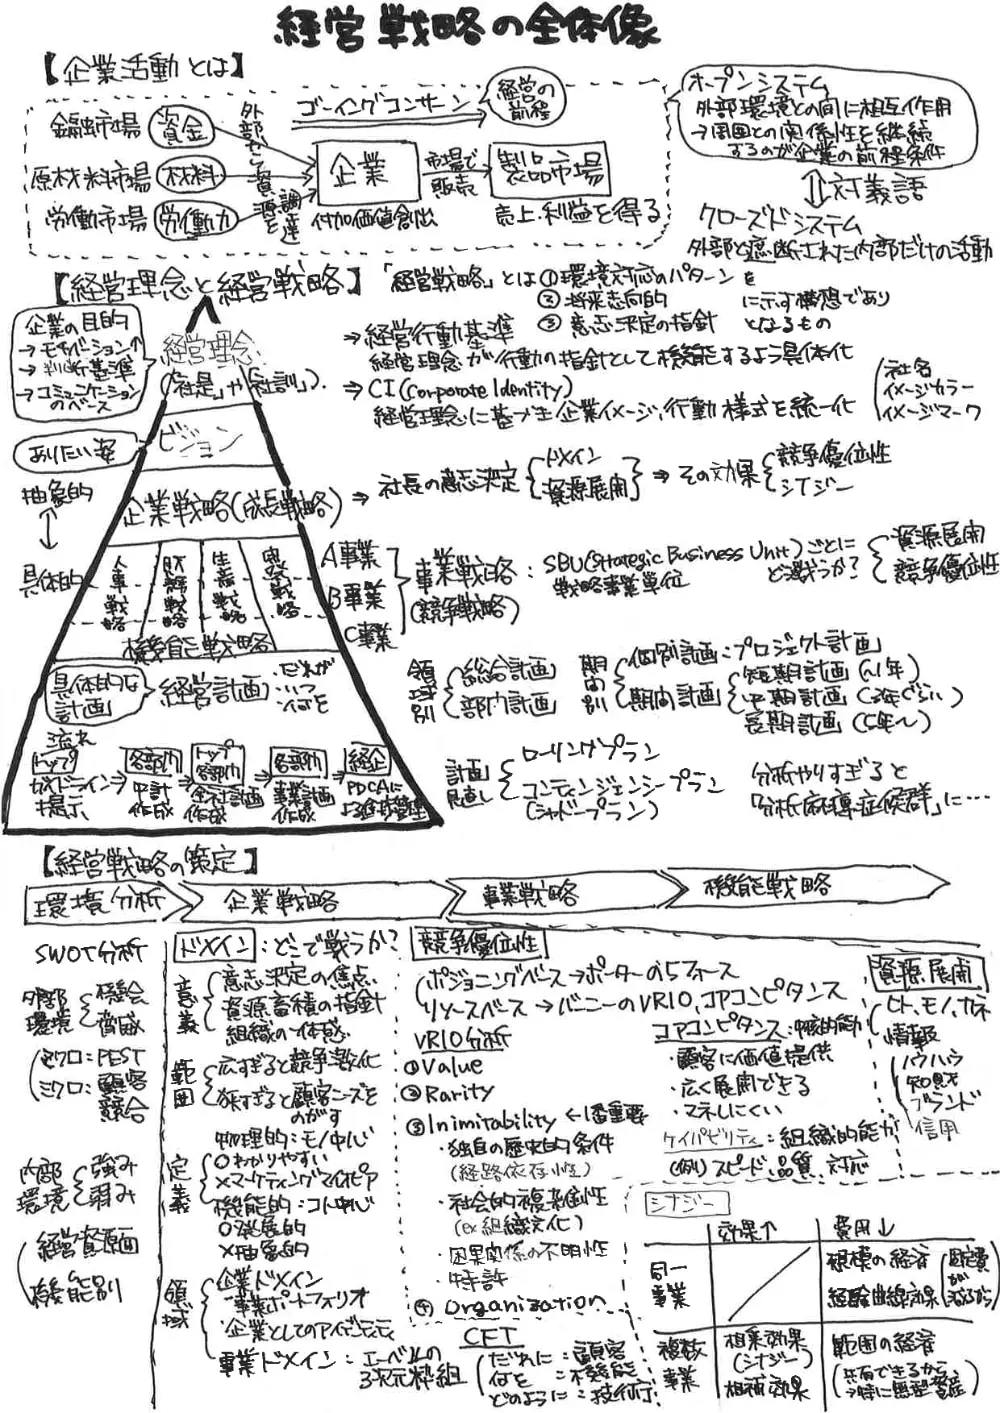 経営戦略の全体像
【企業活動とは】
金融市場 資金
原材料市場 材料
労働市場 労働力
外部から資源を調達
ゴーイングコンサーン
経営の前程
企業
付加価値創出
市場で販売
製品市場
売上・利益を得る
オープンシステム
外部環境との間に相互作用
→周囲との関係性を継続
するのが企業の前程条件
対義語
クローズドシステム
外部と遮断された内部だけの活動
【経営理念と経営戦略】
「経営戦略」とは ①環境対応のパターンを
②将来志向的に示す構想であり
③意志決定の指針となるもの
企業の目的
→モチベーション↑
→判断基準
→コミュニケーションのベース
経営理念
(「社是」や「社訓」)
⇒経営行動基準
経営理念が行動の指針として機能するよう具体化
⇒CI(Corporate Identity)
経営理念に基づき企業イメージ、行動様式を統一化
社名
イメージカラー
イメージマーク
ありたい姿
ビジョン
抽象的
具体的
企業戦略(成長戦略)
⇒社長の意志決定
ドメイン
資源展開
⇒その効果
競争優位性
シナジー
人事戦略
財務戦略
生産戦略
機能戦略
A事業
B事業
C事業
事業戦略
(競争戦略)
: SBU(Strategic Business Unit)ごとに
戦略事業単位
どう戦うか?
資源展開
競争優位性
具体的な計画
経営計画
・だれが
・いつ
・なにを
領域別
総合計画
部門計画
期間別
個別計画:プロジェクト計画
期間計画
短期計画(~1年)
中期計画(3年ぐらい)
長期計画(5年~)
流れ
トップ
ガイドライン提示
各部門
中計作成
トップ
各部門
全社計画作成
各部門
事業計画作成
経企
PDCAによる進捗管理
計画見直し
ローリングプラン
コンティンジェンシープラン
(シャドープラン)
分析やりすぎると
「分析麻痺症候群」に…
【経営戦略の策定】
環境分析
企業戦略
事業戦略
機能戦略
SWOT分析
外部環境
機会
脅威
マクロ:PEST
ミクロ:顧客
競合
内部環境
強み
弱み
経営資源面
機能別
ドメイン:どこで戦うか?
意義
意志決定の焦点
資源蓄積の指針
組織の一体感
範囲
広すぎると競争激化
狭すぎると顧客ニーズを
のがす
定義
物理的:モノ中心
○わかりやすい
×マーケティングマイオピア
機能的:コト中心
○発展的
×抽象的
領域
企業ドメイン
事業ポートフォリオ
企業としてのアイデンティティ
事業ドメイン:エーベルの
3次元枠組
競争優位性
ポジショニングベース→ポーターの5フォース
リソースベース→バーニーのVRIO、コアコンピタンス
VRIO分析
①Value
②Rarity
③Inimitability ←1番重要
・独自の歴史的条件
(経路依存性)
・社会的複雑性
(ex組織文化)
・因果関係の不明性
・特許
④Organization
CFT
だれに:顧客
何を:機能
どのように:技術
コアコンピタンス:中核的能力
・顧客に価値提供
・広く展開できる
・マネしにくい
ケイパビリティ:組織的能力
(例)スピード、品質、対応
資源展開
ヒト、モノ、カネ
情報
ノウハウ
知財
ブランド
信用
シナジー
効果↑ 費用↓
同一事業
規模の経済
経験曲線効果
(固定費が減るから)
複数事業
相乗効果
(シナジー)
相補効果
範囲の経済
(共有できるから
→特に無形資産)